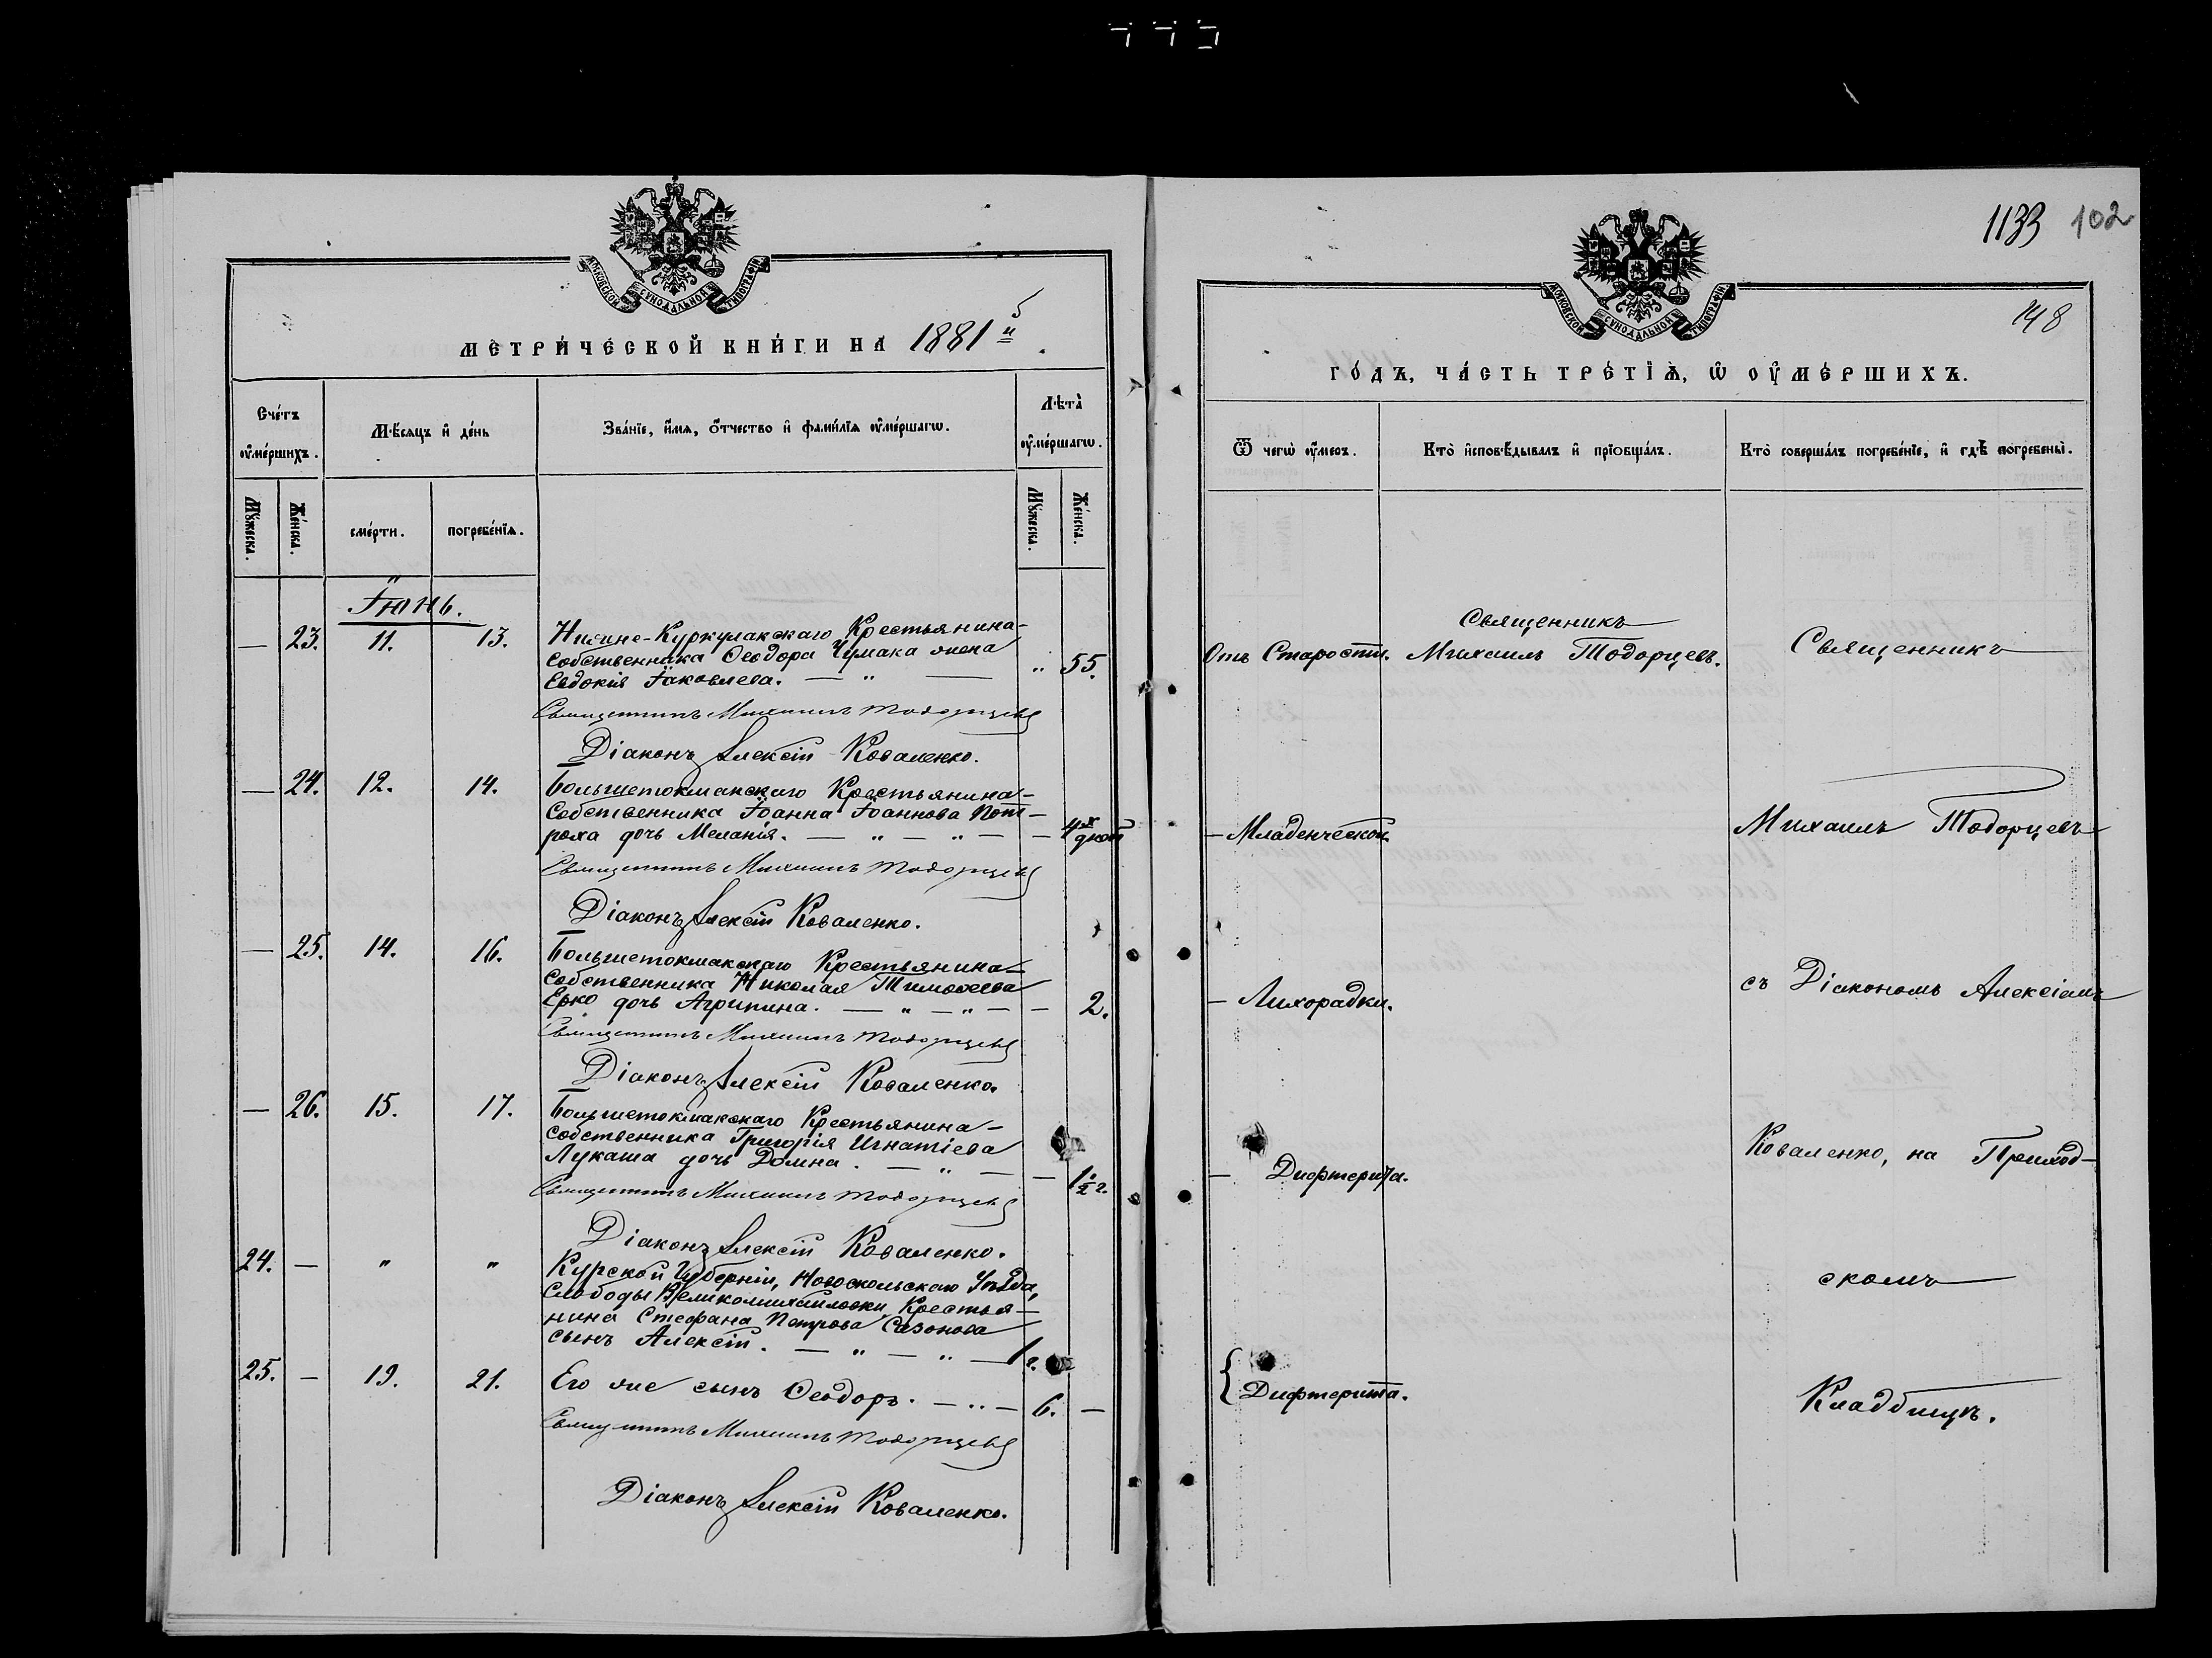 1133 102
148
МОСКОВСКОЙ СѴНОДАЛЬНОЙ ТИПОГРАФІИ
МЕТРИ́ЧЕСКОЙ КНИ́ГИ НА 1881й
Сче́тъ оу҆ме́ршихъ.
Мѣ́сяцъ и҆ де́нь
Зва́нїе, и҆́мѧ, ѻ҆́тчество и҆ фами́лїѧ оу҆ме́ршагѡ.
Лѣта̀ оу҆ме́ршагѡ.
Мꙋ́жеска. Же́нска. сме́рти. погребе́нїѧ. Мꙋ́жеска. Же́нска.
Іюнь.
— 23. 11. 13. Нижне-Куркулакскаго Крестьянина-
собственника Ѳеодора Чумака жена
Евдокія Іаковлева. — „ — „ 55.
Священникъ Михаилъ Тодорцевъ
Діаконъ Алексій Коваленко.
— 24. 12. 14. Большетокмакскаго Крестьянина-
Собственника Іоанна Іоаннова Пот-
роха дочь Меланія. — „ — „ — — 4х дней
Священникъ Михаилъ Тодорцевъ
Діаконъ Алексій Коваленко.
— 25. 14. 16. Большетокмакскаго Крестьянина-
Собственника Николая Тимоѳеева
Ерко дочь Агрипина. — „ — „ — — 2.
Священникъ Михаилъ Тодорцевъ
Діаконъ Алексій Коваленко.
— 26. 15. 17. Большетокмакскаго Крестьянина-
собственника Григорія Игнатіева
Лукаша дочь Домна. — „ — — 1½ г.
Священникъ Михаилъ Тодорцевъ
Діаконъ Алексій Коваленко.
24. — „ „ Курской Губерніи, Новоскольскаго Уѣзда,
Слободы Великомихайловки Крестья-
нина Стефана Петрова Сазонова
сынъ Алексій. — „ — „ — 1 г.
25. — 19. 21. Его же сынъ Ѳеодоръ. — „ — 6. —
Священникъ Михаилъ Тодорцевъ
Діаконъ Алексій Коваленко.
МОСКОВСКОЙ СѴНОДАЛЬНОЙ ТИПОГРАФІИ
ГО́ДЪ, ЧА́СТЬ ТРЕ́ТЇѦ, Ѡ҆ ОУ҆МЕ́РШИХЪ.
Ѿ чегѡ̀ оу҆́меръ.
Кто̀ и҆сповѣ́дывалъ и҆ прїѡбща́лъ.
Кто̀ соверша́лъ погребе́нїе, и҆ гдѣ̀ погребены̀.
Отъ Старости.
Священникъ
Михаилъ Тодорцевъ.
Священникъ
— Младенческой.
Михаилъ Тодорцевъ
— Лихорадки.
съ Діакономъ Алексіемъ
— Дифтерита.
Коваленко, на Приход-
скомъ
{ Дифтерита.
Кладбищѣ.